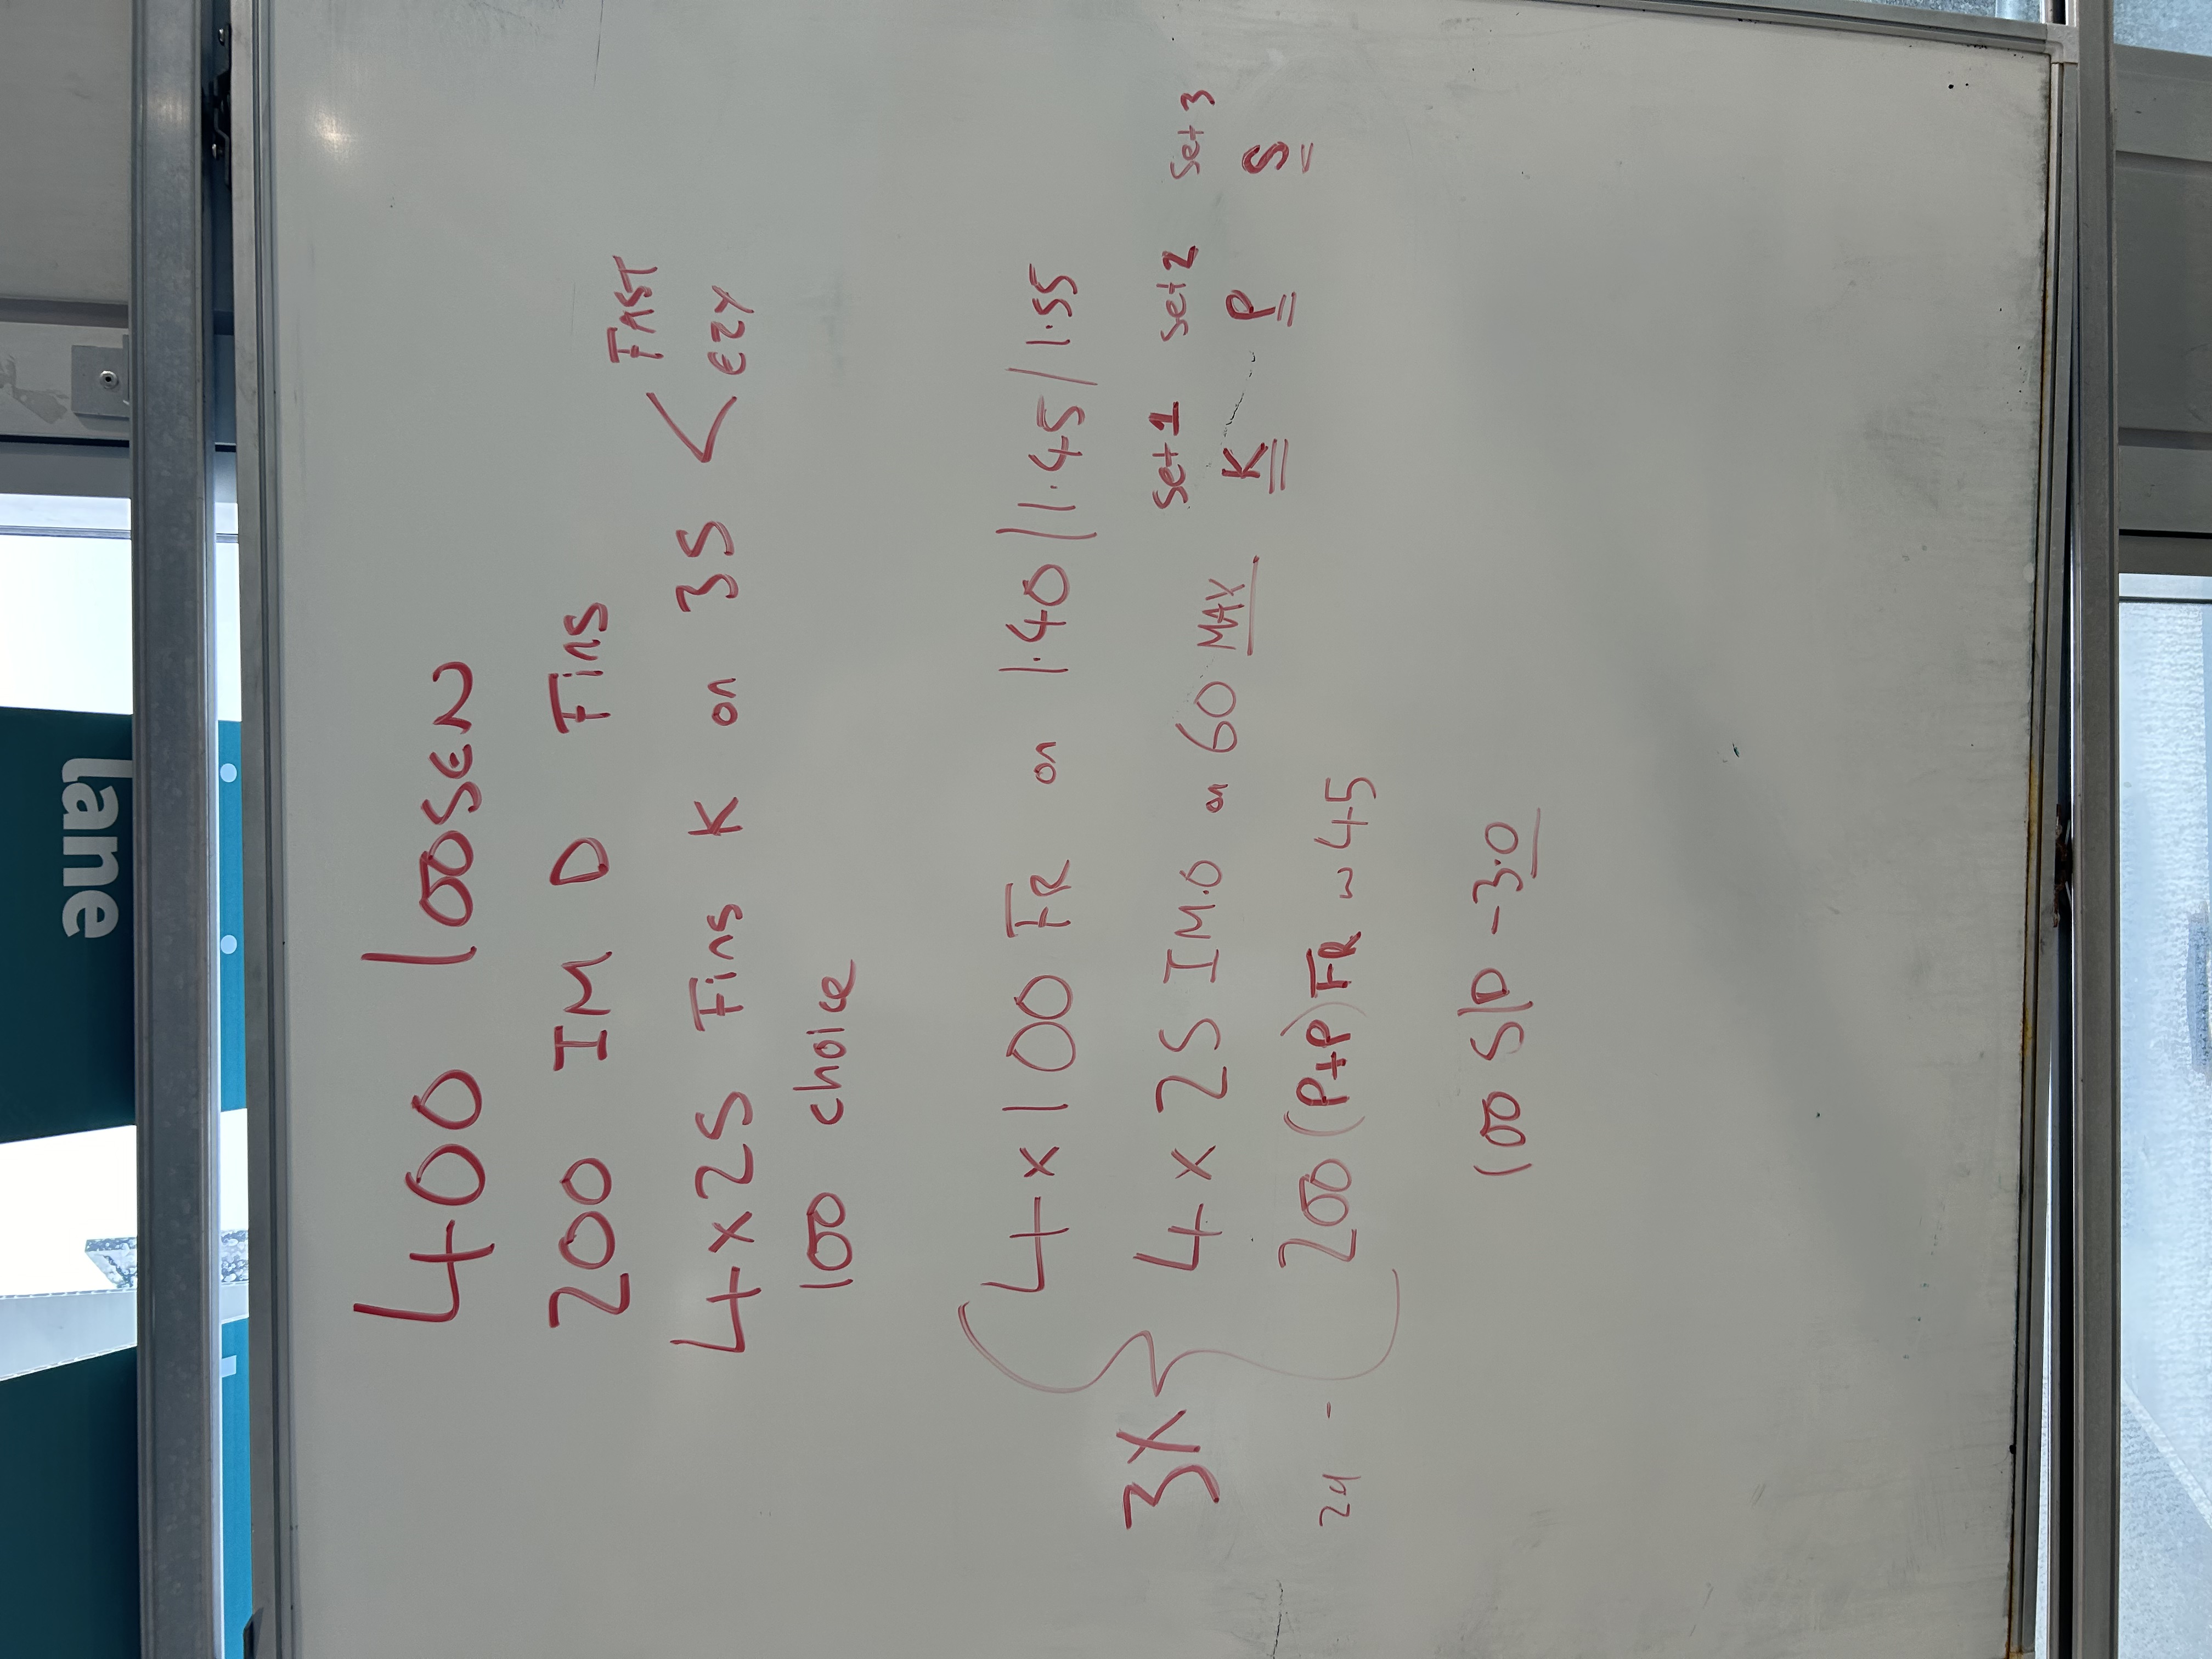 lane
400 loosEN
200 IM D Fins
4x25 Fins K on 35 < FAST
EZY
100 choice
4x100 FR on 1.40/1.45/1.55
3X { 4x25 IM.O on 60 MAX set1 set2 set3
K P S
200 (P+P) FR ~ 45
100 S/D - 3.0